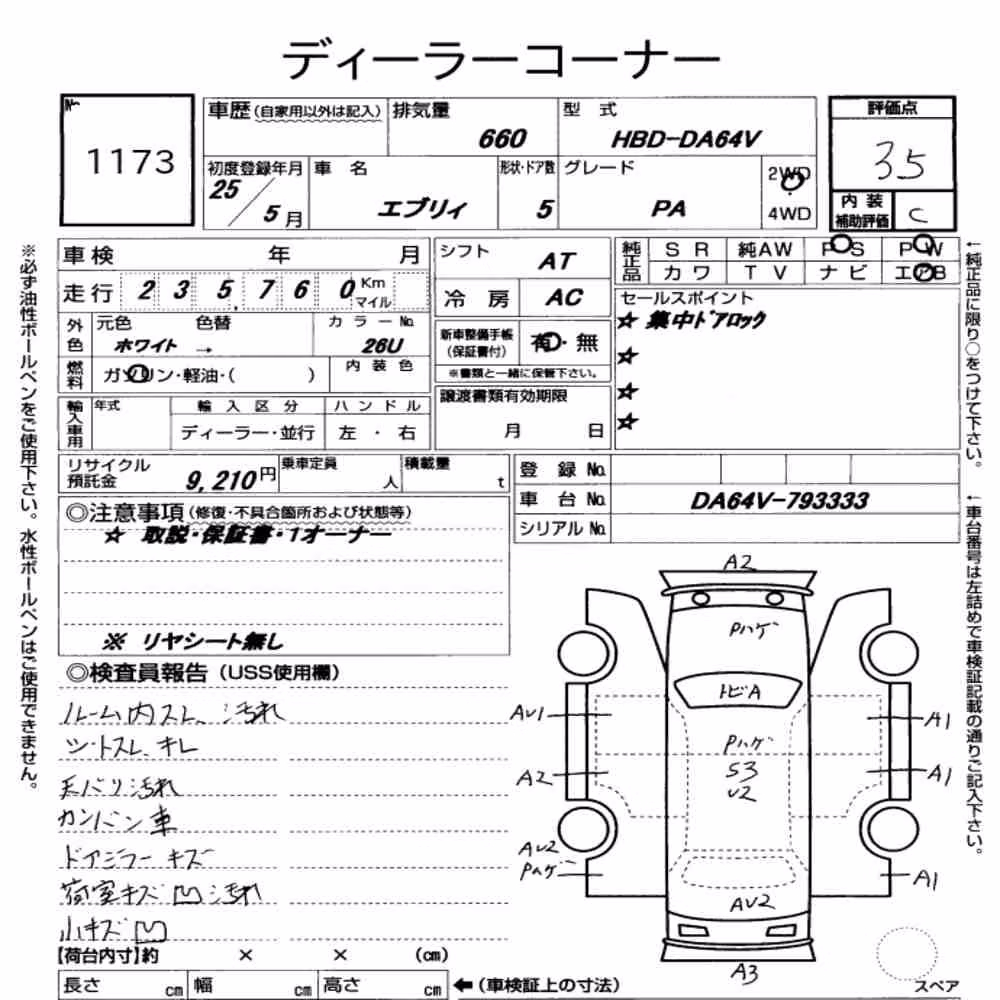 ディーラーコーナー
№
1173
車歴 (自家用以外は記入)
排気量
660
型式
HBD-DA64V
評価点
35
初度登録年月
25 / 5月
車名
エブリィ
形状・ドア数
5
グレード
PA
2WD
4WD
内装
補助評価
C
車検 年 月
走行 235,760 Km
マイル
シフト AT
冷房 AC
純正品
SR 純AW PS PW
カワ TV ナビ エアB
外色
元色 色替 カラー№
ホワイト → 26U
燃料
ガソリン・軽油・( )
内装色
新車整備手帳
(保証書付)
有・無
※書類と一緒に保管下さい。
セールスポイント
☆ 集中ドアロック
☆
☆
☆
輸入車用
年式
輸入区分
ディーラー・並行
ハンドル
左・右
譲渡書類有効期限
月 日
リサイクル
預託金
9,210円
乗車定員
人
積載量
t
登録 №
車台 № DA64V-793333
シリアル №
◎注意事項(修復・不具合箇所および状態等)
☆ 取説・保証書・1オーナー
※ リヤシート無し
◎検査員報告(USS使用欄)
ルーム内スレ、汚れ
シートスレ、キレ
天バリ汚れ
カンバン車
ドアミラーキズ
荷室キズ凹汚れ
小キズ凹
A2
Pハゲ
トビA
AU1
A1
Pハゲ
S3
U2
A2
A1
AU2
Pハゲ
A1
AU2
A3
スペア
【荷台内寸】約 × × (cm)
長さ cm 幅 cm 高さ cm ←(車検証上の寸法)
※必ず油性ボールペンをご使用下さい。水性ボールペンはご使用できません。
←純正品に限り○をつけて下さい。
←車台番号は左詰めで車検証記載の通りご記入下さい。